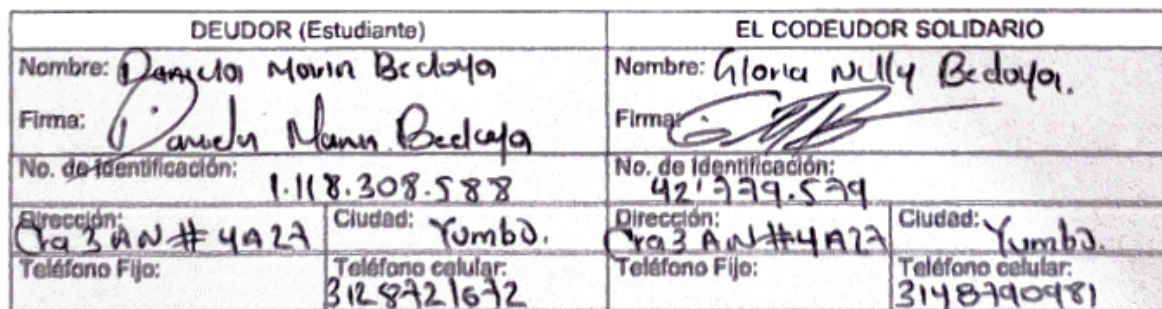 DEUDOR (Estudiante) EL CODEUDOR SOLIDARIO
Nombre: Daniela Marin Bedoya Nombre: Gloria Nelly Bedoya.
Firma: Daniela Marin Bedoya Firma:
No. de Identificación: 1.118.308.588 No. de Identificación: 42'779.579
Dirección: Cra 3 AN # 4A27 Ciudad: Yumbo. Dirección: Cra 3 AN # 4A27 Ciudad: Yumbo.
Teléfono Fijo: Teléfono celular: 3128721672 Teléfono Fijo: Teléfono celular: 3148790981